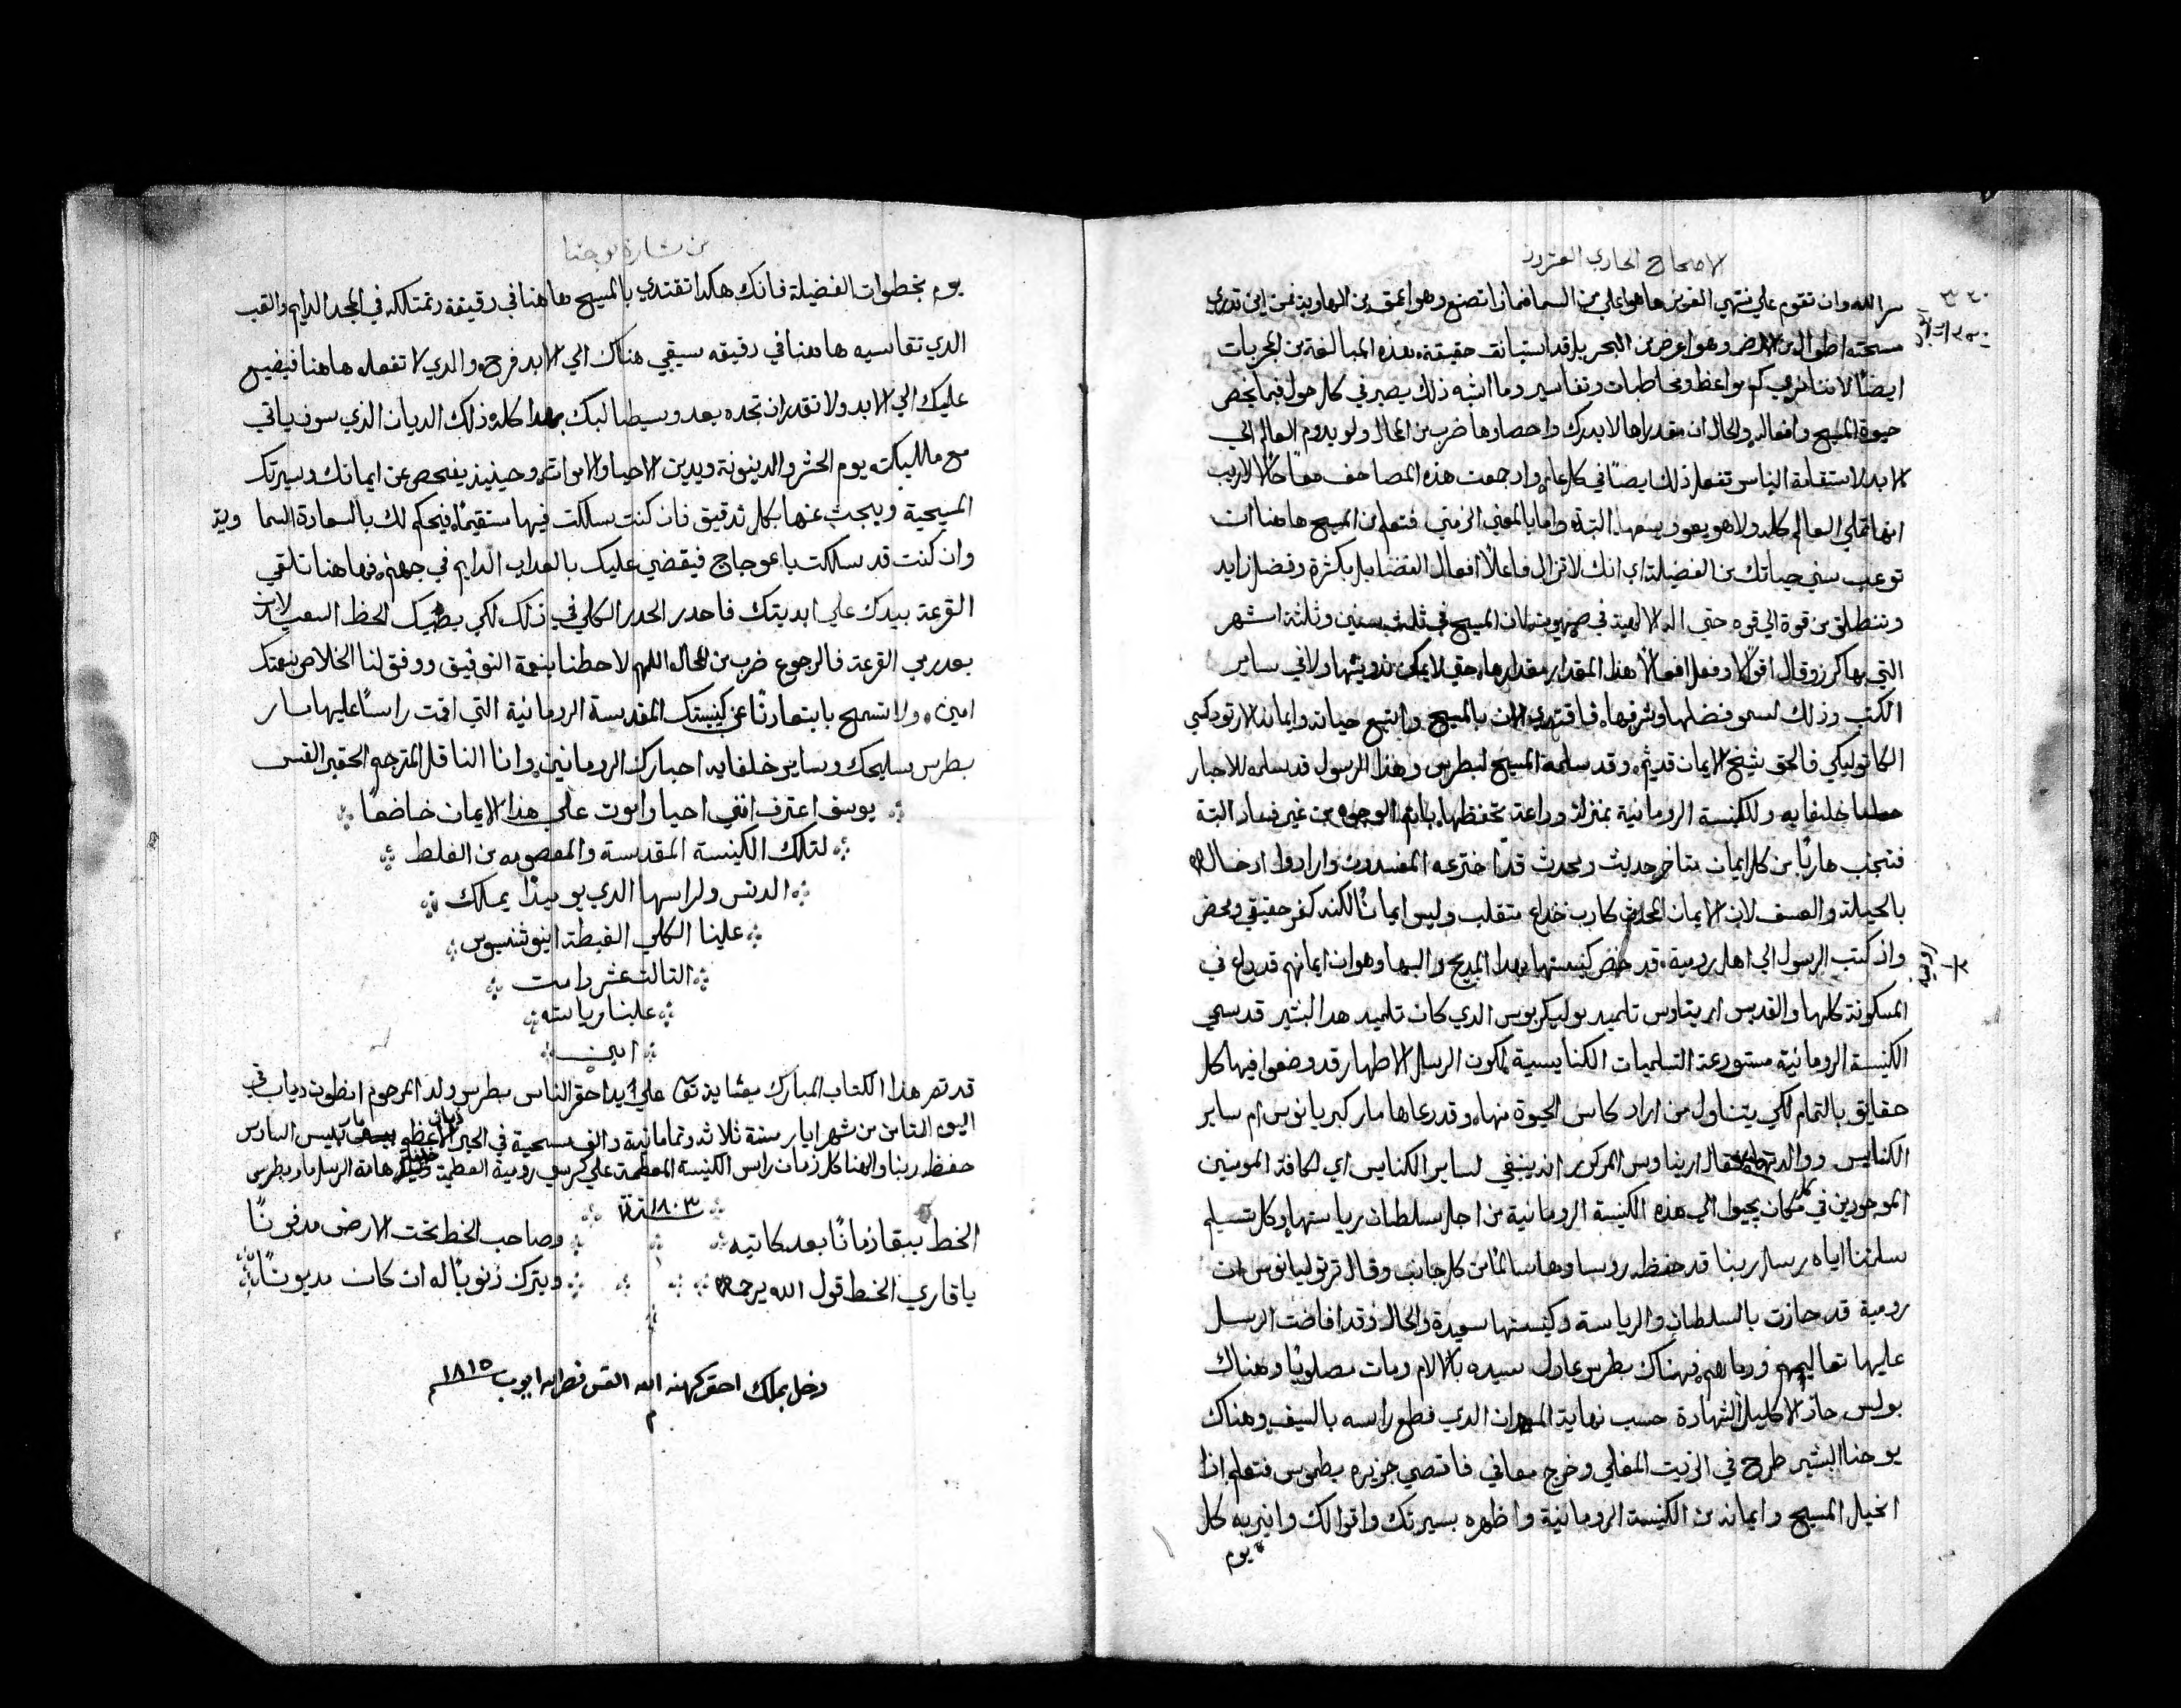 الاصحاح الحادي العشرون
سر الله وان تقوم علي منتهي القوين هاهوا علي من السما فماذا تصنع وهو اعمق من الهاوية فمن اين تدري
مسحته اطوال من الارض وهو اعرض من البحر بل قد استبانت حقيقة هذه المبالغة من المجربات
ايضا لاننا نري كم مواعظ ومخاطبات وتفاسير وما اشبه ذلك يصير في كل حول فيما يخص
حيوة المسيح وافعاله والحال ان مقدراها لا يدرك واحصارها ضرب من المحال ولو يدوم العالم الي
الابد لاستقامة الناس تفعل ذلك ايضا في كل عام واد جمعت هذه المصاحف معا حالا لاريب
انها تملي العالم كله ولا هو يعود يسعها البتة واما بالمعني الزمني فتعلم من المسيح هاهنا ان
توعب سني حياتك من الفضيلة اي انك لا تزال فاعلا افعال الفضايل بكثرة وفضل زايد
وتنطلق من قوة الي قوه حتي اله الالهة في صهيون لان المسيح في ثلث سنين وثلثة اشهر
التي بها كرز وقال اقوالا وفعل افعالا هذا المقدار مقدارها حتي لا يمكن تدوينها ولا في ساير
الكتب وذلك لسمو فضلها وشرفها فاقتدي الان بالمسيح واتبع حياته وايمانه الارتودكسي
الكاتوليكي فالحق شيخ الايمان قديم وقد سلمه المسيح لبطرس وهذا الرسول قد سلمه للاحبار
خلفايه وللكنيسة الرومانية بمنزلة وداعة تحفظها باتم الوجوه من غير فساد البتة
فتجنب هاربا من كل ايمان متاخر حديث ومحدث قد اخترعه المفسدون وارادوا ادخاله
بالحيلة والعسف لان الايمان المحدث كارب خداع متقلب وليس ايمانا لكنه كفر حقيقي ومحض
واذ كتب الرسول الي اهل رومية قد خص كنيستها بهذا المديح والبها وهو ان ايمانهم قد ذاع في
المسكونة كلها والقديس اريناوس تلميد بوليكربوس الدي كان تلميد هدا البشير قد سمي
الكنيسة الرومانية مستودعة التسليمات الكنايسية لكون الرسل الاطهار قد وضعوا فيها كل
حقايق بالتمام لكي يتناول من اراد كاس الحيوة منها وقد دعاها مار كبريانوس ام ساير
الكنايس ووالدتهاوقال اريناوس المركور انه ينبغي لساير الكنايس اي لكافة المومنين
الموجودين في كل مكان يجيوا الي هذه الكنيسة الرومانية من اجل سلطان رياستها وكل تسليم
سلمنا اياه رسل ربنا قد حفظه روساوها سالما من كل جانب وقال ترتوليانوس ان
رومية قد حازت بالسلطان والرياسة وكنيستها سعيدة والحال وقد افاضت الرسل
عليها تعاليمهم ودماهم فهناك بطرس عادل سيده بالالام ومات مصلوبا وهناك
بولس حاز الاكليل الشهادة حسب نهاية المعمدان الدي قطع راسه بالسيف وهناك
يوحنا البشير طرح في الزيت المغلي وخرج معافي فاقصي جزيره بطموس فتعلم اذا
انجيل المسيح وايمانه من الكنيسة الرومانية واظهره بسيرتك واقوالك وانير به كل
يوم
من بشارة يوحنا
يوم بخطوات الفضيلة فانك هكدا تقتدي بالمسيح هاهنا في دقيقة وتمتلكه في المجد الدايم والتعب
الدي تقاسيه هاهنا في دقيقه سيبقي هناك الي الابد فرح والدي لا تفعله هاهنا فيضيع
عليك الي الابد ولا تقدر ان تجده بعد وسيطالبك بهدا كله ذلك الديان الذي سوف ياتي
مع ملايكته يوم الحشر والدينونة ويدين الاحيا والاموات وحينيذ يفحص عن ايمانك وسيرتك
المسيحية ويبحث عنها بكل تدقيق فان كنت سلكت فيها مستقيما فيحكم لك بالسعادة السماوية
وان كنت قد سلكت باعوجاج فيقضي عليك بالعداب الدايم في جهنم فهاهنا تلقي
القرعة بيدك علي ابديتك فاحدر الحدر الكلي في ذلك لكي يصيبك الحظ السعيد لان
بعد رمي القرعة فالرجوع ضرب من المحال اللهم لاحظنا بنعمة التوفيق ووفق لنا الخلاص بنعمتك
امين ولا تسمح بابتعادنا عن كنيستك المقدسة الرومانية التي اقمت راسا عليها مار
بطرس سليحك وساير خلفايه احبارك الرومانين وانا الناقل المترجم الحقير القس
يوسف اعترف انني احيا واموت علي هذا الايمان خاضعا
لتلك الكنيسة المقدسة والمعصومه من الغلط
الدنس ولراسها الدي يوميذا يملك
علينا الكلي الغبطة اينوشنسيوس
التالت عشر دامت
علينا رياسته
امين
قد تم هذا الكتاب المبارك بمشاية تعا علي يد احقر الناس بطرس ولد المرحوم انطون دياب في
اليوم التامن من شهر ايار سنة ثلاثة وتمامانية والف مسيحية في الحبر الاعظم بيوس السادس
حفظه ربنا والهنا كل زمان راس الكنيسة المعظمة علي كرسي رومية العظيمة خليفة هامة الرسل مار بطرس
سنة ١٨٠٣
الخط يبقا زمانا بعد كاتبه وصاحب الخط تحت الارض مدفونا
يا قاري الخط قول الله يرحمه ويترك ذنوبا له ان كان مديونا
دخل بملك احقر كهنه الله القس نصرالله ايوب ١٨١٥